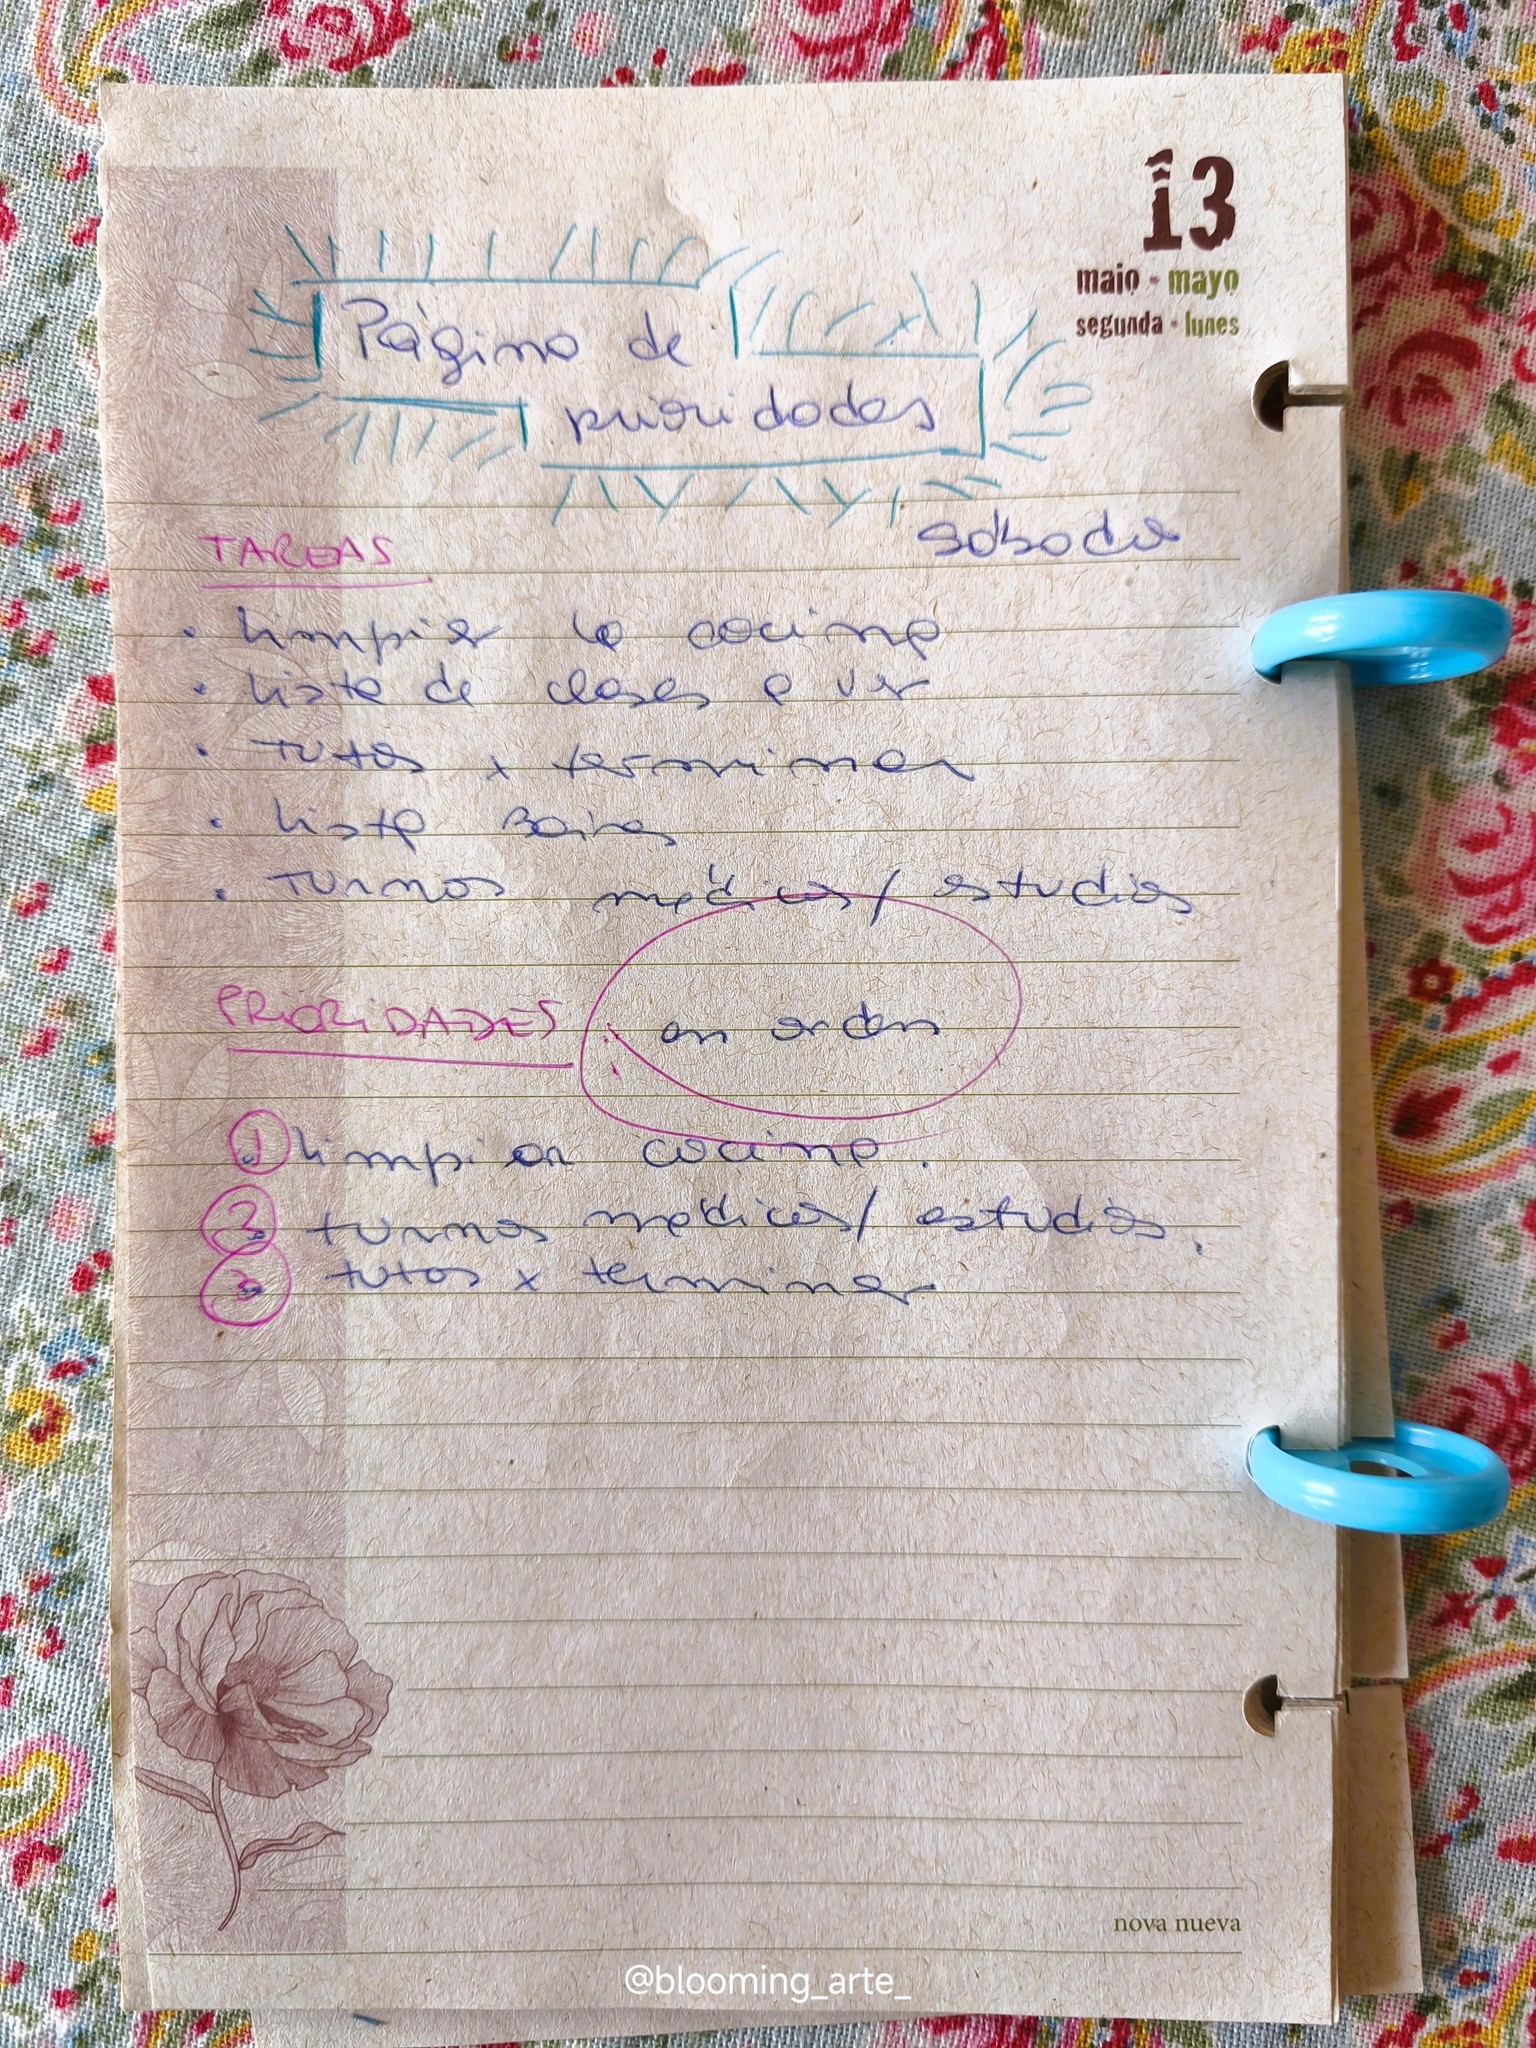 13
maio - mayo
segunda - lunes
Página de
prioridades
sábado
TAREAS
• limpiar la cocina
• lista de clases a ver
• tutos x terminar
• lista
• turnos médicos/ estudios
PRIORIDADES : en orden
1. limpiar cocina.
2. turnos médicos/ estudios.
3. tutos x terminar
nova nueva
@blooming_arte_